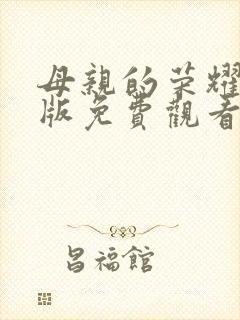 母親的荣耀
版免費觀看
昌福館